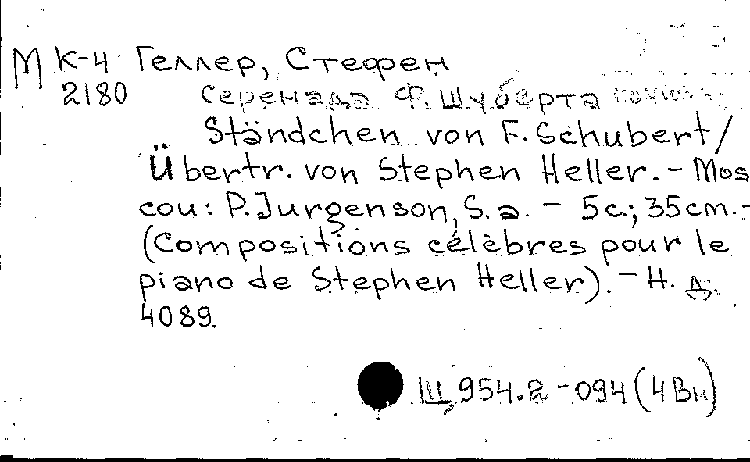 М К-4 Геллер, Стефен
2180 Серенада Ф. Шуберта
Ständchen von F. Schubert/
Übertr. von Stephen Heller. - Mos
cou: P. Jurgenson, S. a. - 5 с.; 35 cm. -
(Compositions célèbres pour le
piano de Stephen Heller). - Н. д.
4089.
Щ 954.2 - 094 (4Вц)